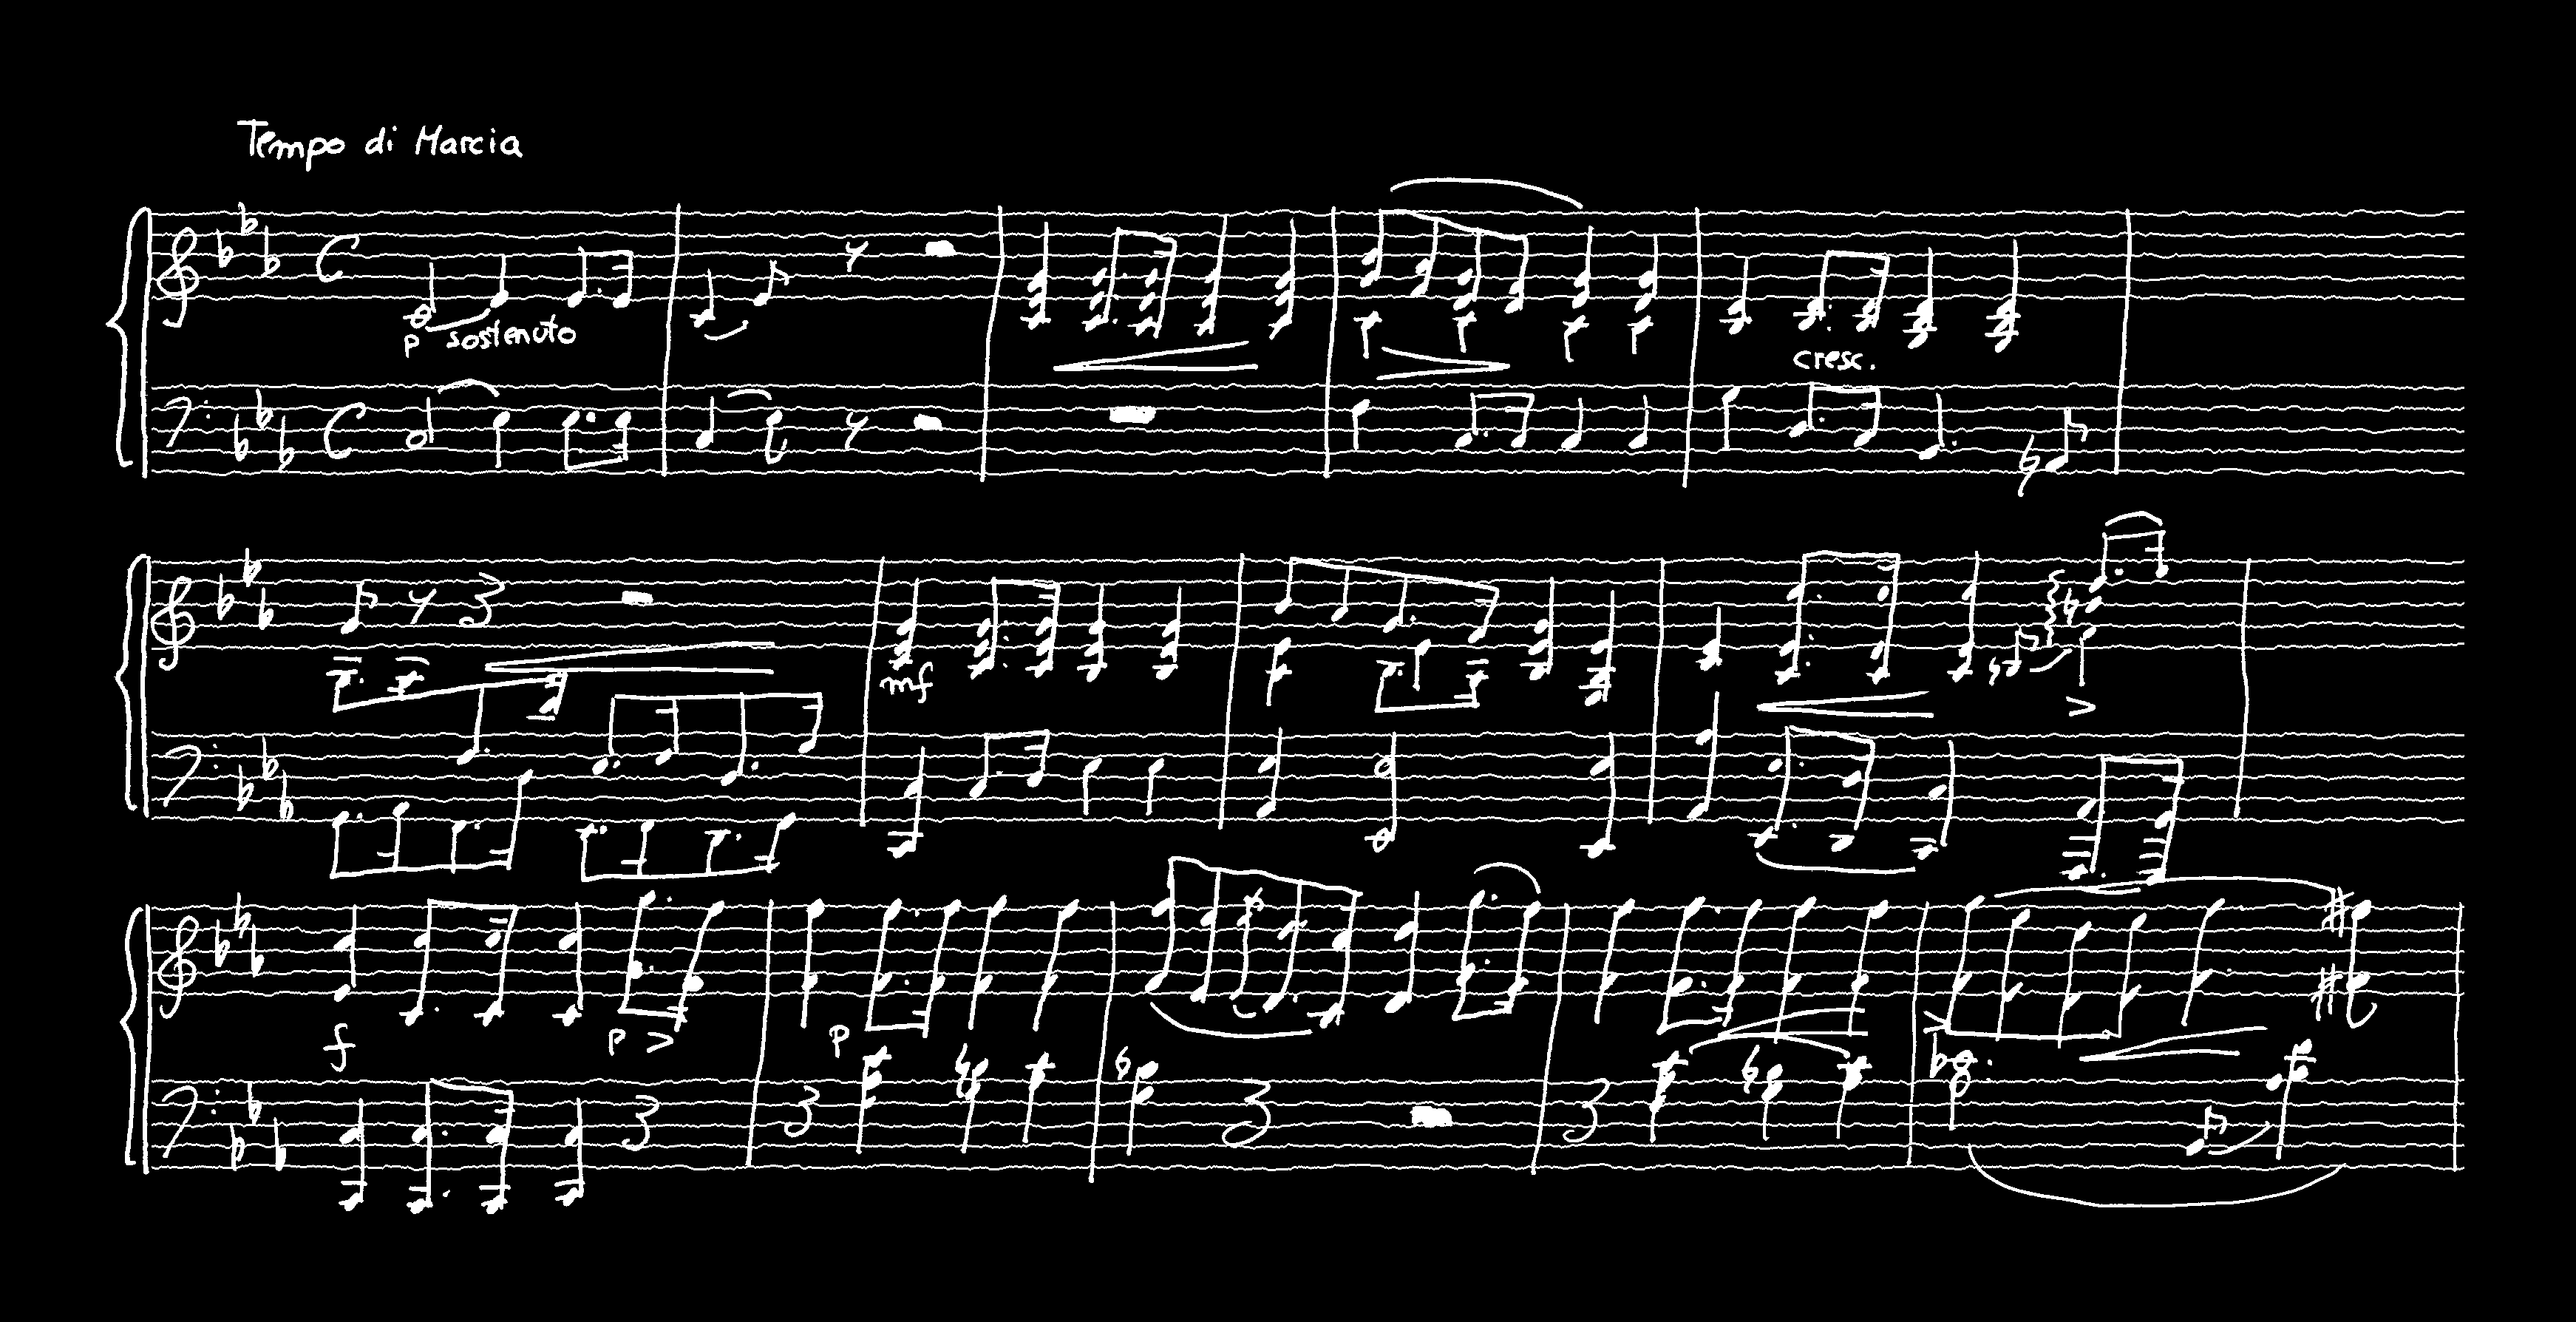 Tempo di Marcia
p sostenuto
cresc.
mf
f p p